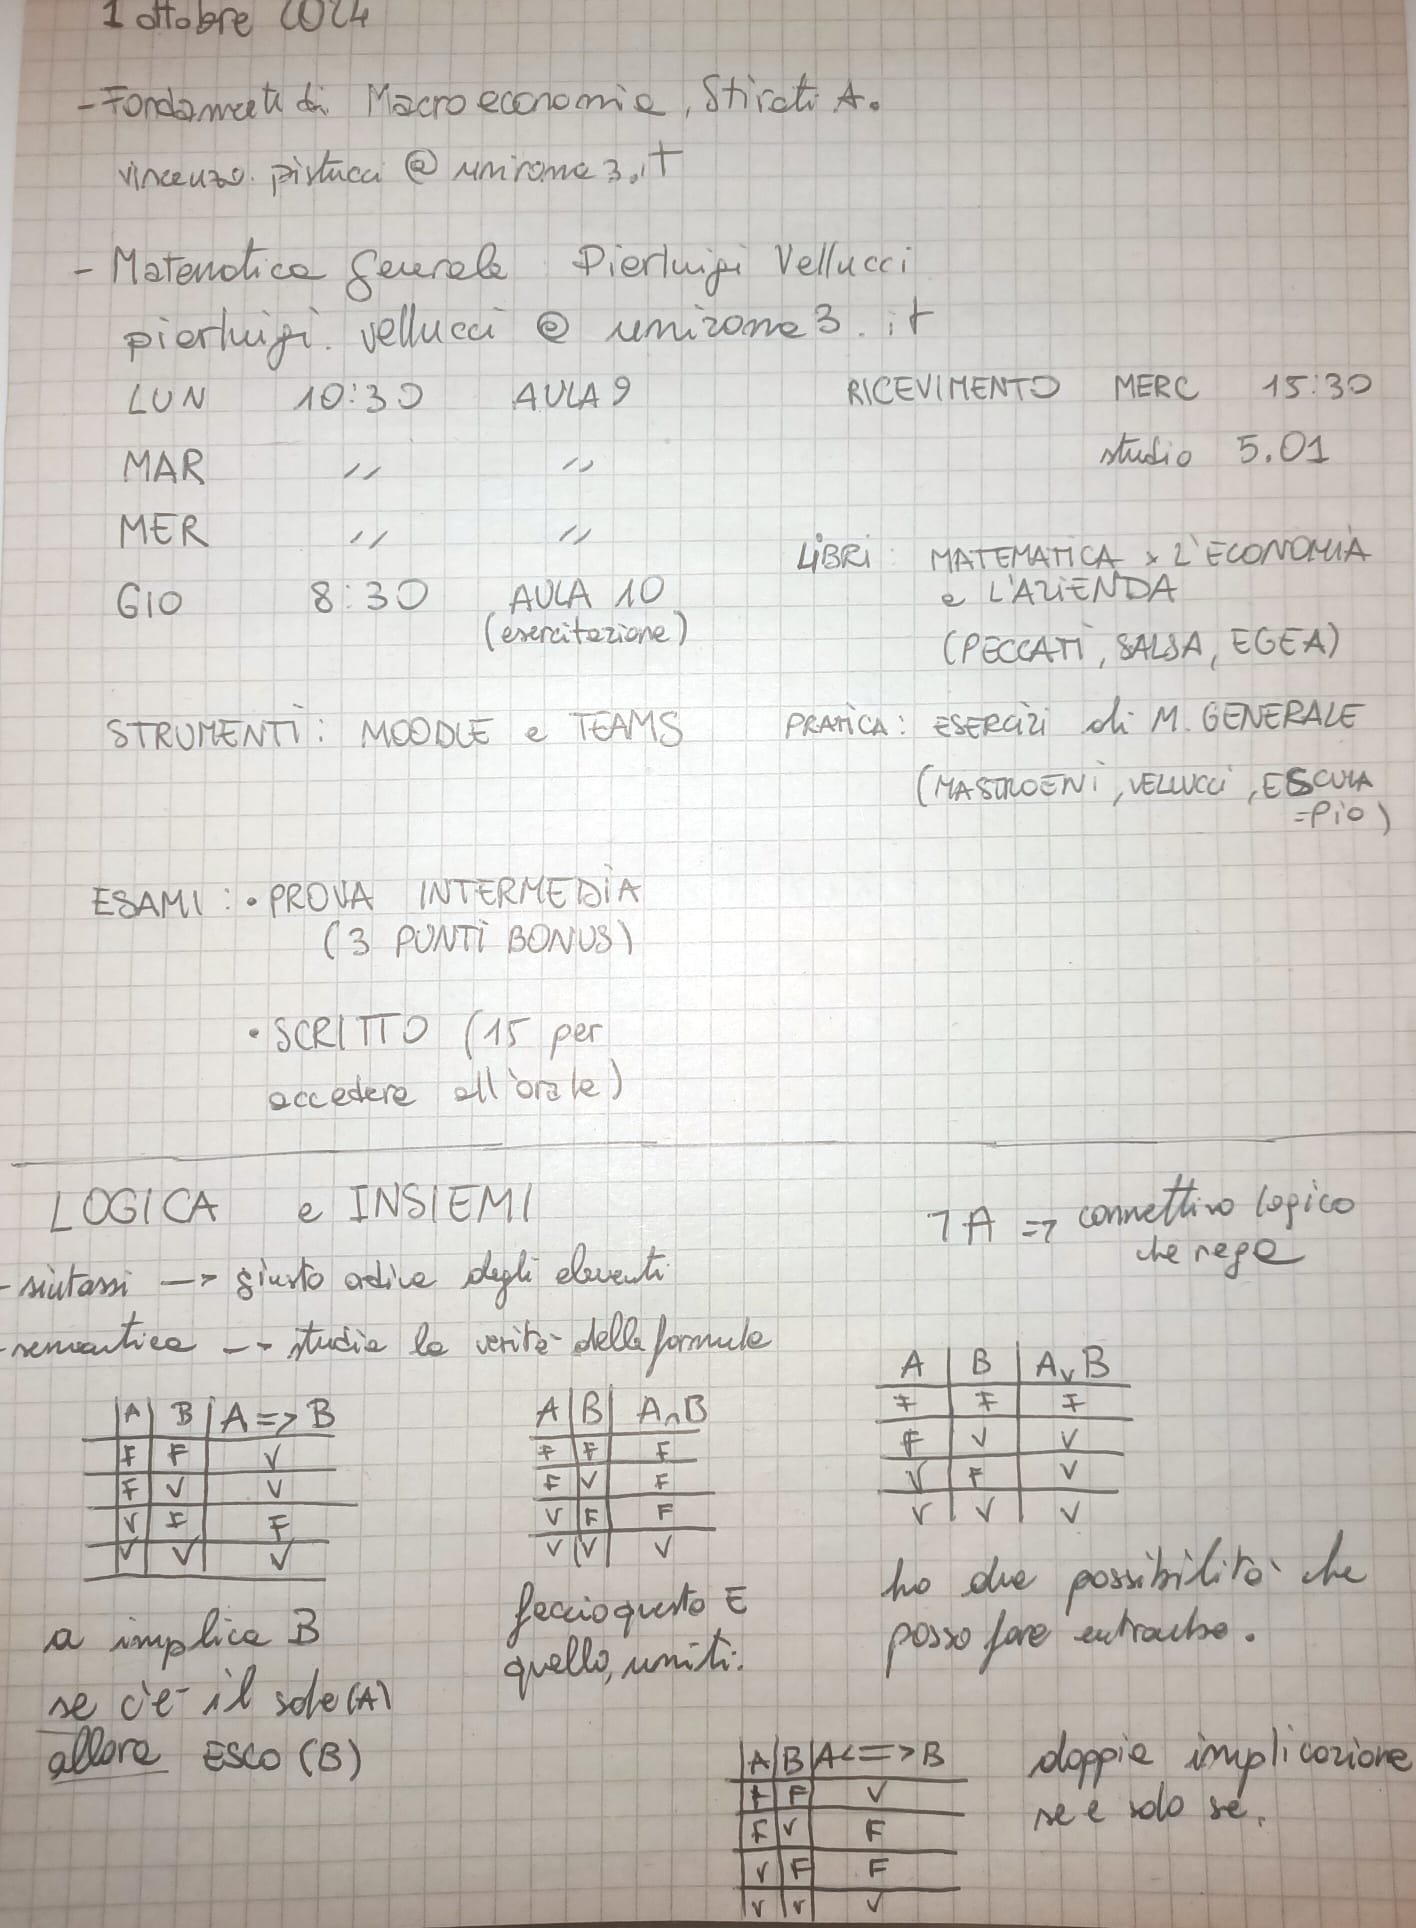 1 ottobre 2024
- Fondamenti di Macroeconomia, Stirati A.
vincenzo.pistucci @ uniroma3.it
- Matematica Generale Pierluigi Vellucci
pierluigi.vellucci @ uniroma3.it
LUN 10:30 AULA 9
MAR " "
MER " "
GIO 8:30 AULA 10
(esercitazione)
RICEVIMENTO MERC 15:30
studio 5.01
LIBRI: MATEMATICA x L'ECONOMIA
e L'AZIENDA
(PECCATI, SALSA, EGEA)
STRUMENTI: MOODLE e TEAMS
PRATICA: ESERCIZI di M. GENERALE
(MASTROENI, VELLUCCI, ESCULA
=PIO)
ESAMI: • PROVA INTERMEDIA
(3 PUNTI BONUS)
• SCRITTO (15 per
accedere all'orale)
LOGICA e INSIEMI
- sintassi —> giusto ordine degli elementi
- semantica —> studia la verità delle formule
¬A => connettivo logico
che nega
A B A=>B
F F V
F V V
V F F
V V V
a implica B
se c'è il sole (A)
allora ESCO (B)
A B A∧B
F F F
F V F
V F F
V V V
faccio questo E
quello, uniti.
A B A∨B
F F F
F V V
V F V
V V V
ho due possibilità che
posso fare entrambe.
A B A<=>B
F F V
F V F
V F F
V V V
doppia implicazione
se e solo se.